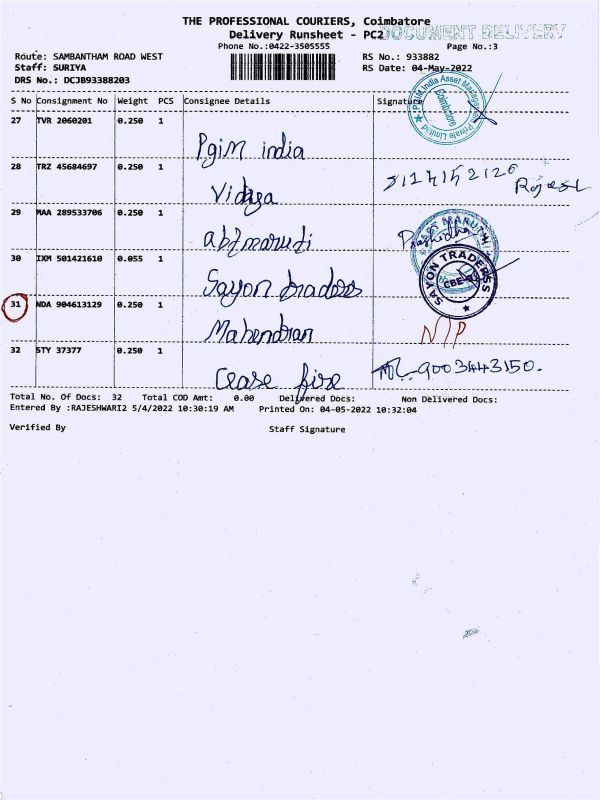 THE PROFESSIONAL COURIERS, Coimbatore
Delivery Runsheet - PC2
DOCUMENT DELIVERY
Phone No.:0422-3505555
Page No.:3
Route: SAMBANTHAM ROAD WEST
RS No.: 933882
Staff: SURIYA
RS Date: 04-May-2022
DRS No.: DCJB93388203
S No Consignment No Weight PCS Consignee Details Signature
PGIM India Asset Management Private Limited
Coimbatore
27 TVR 2060201 0.250 1
Pgim india
28 TRZ 45684697 0.250 1
Vidhya
Rajesh
29 MAA 289533706 0.250 1
abtmaruti
MARUTHI
30 IXM 501421610 0.055 1
Sayon traders
SAYON TRADERSS
CBE
31 NDA 904613129 0.250 1
Mahendran
N/P
32 STY 37377 0.250 1
Cease fire
9003443150.
Total No. Of Docs: 32 Total COD Amt: 0.00 Delivered Docs: Non Delivered Docs:
Entered By :RAJESHWARI2 5/4/2022 10:30:19 AM Printed On: 04-05-2022 10:32:04
Verified By Staff Signature